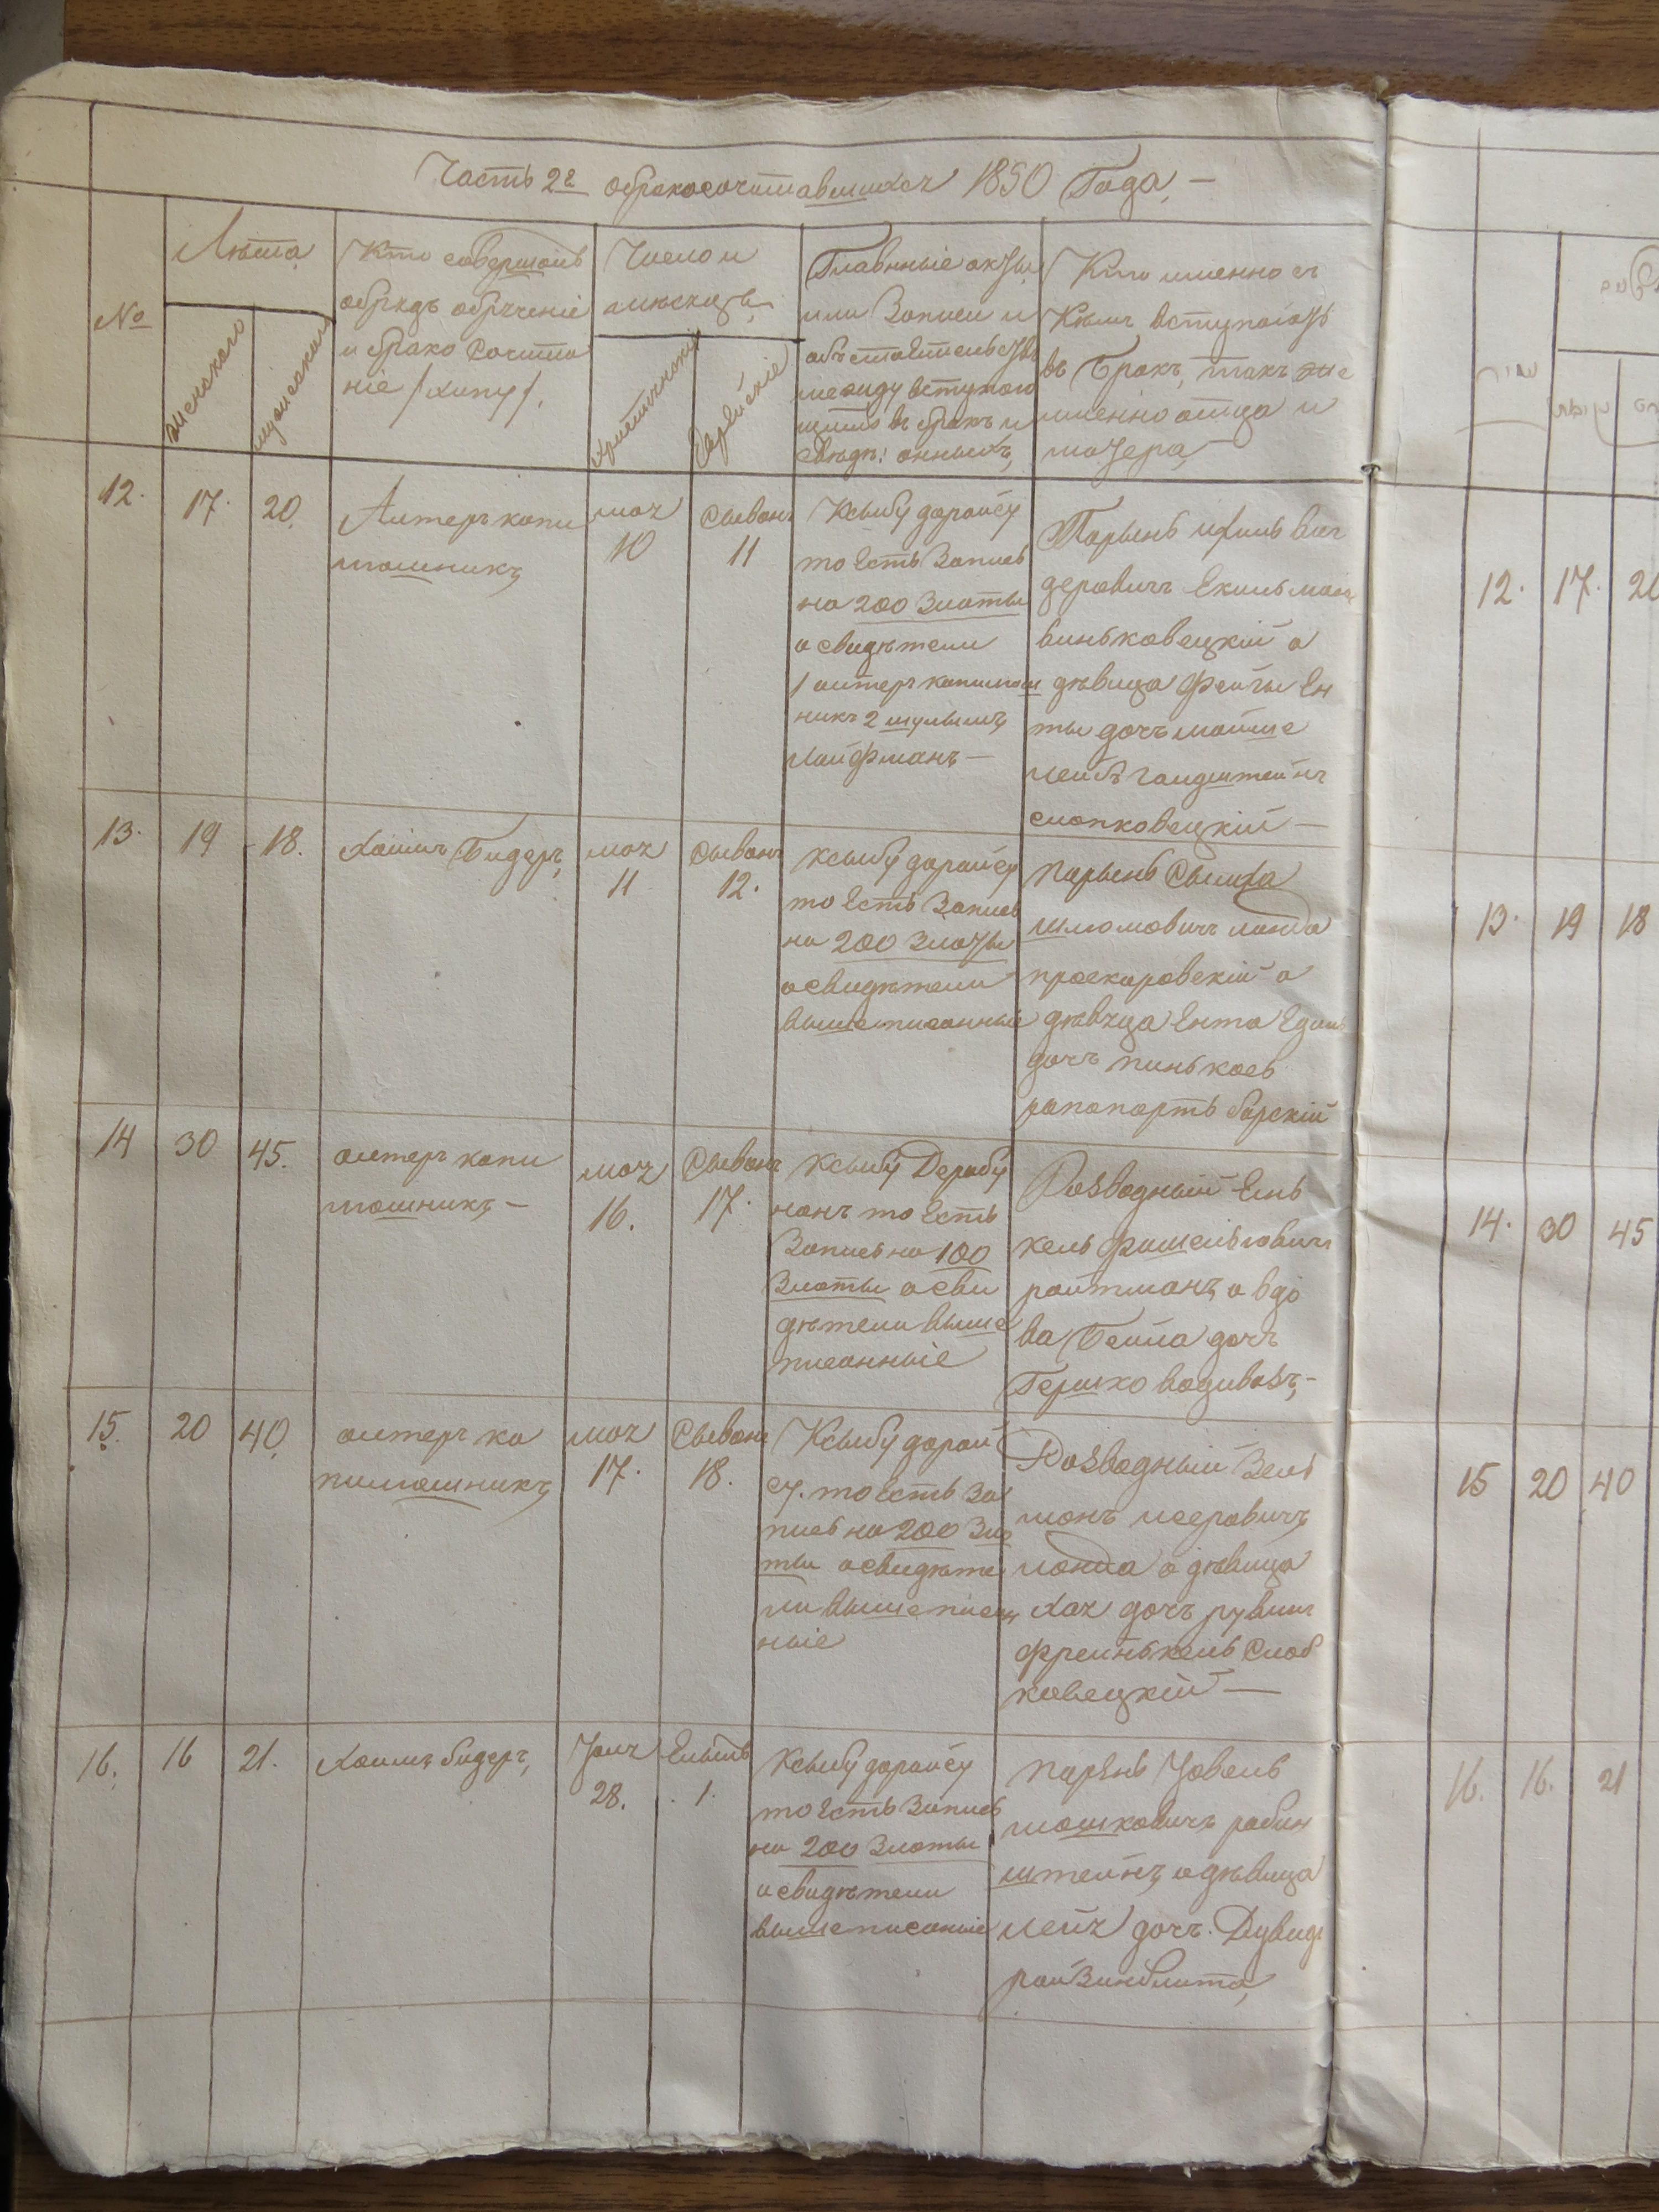 Часть 2я обракосочитавшихся 1850 Года, —
№
Лѣта
женскаго
мужескаго
Кто совершалъ
обрядъ обрученіе
и брако Сочита
ніе / хипу /.
Число и
мѣсяцъ,
христіянскій
Еврейскіе
Главнніе акты,
или Записи и
объстоятельства
между вступаю
щими въ бракъ и
свѣдѣ:
Кто именно съ
Кѣмъ вступаютъ
въ Бракъ, такъ же
именно отца и
матера,
12.
17.
20.
Алтеръ капи
тошникъ,
мая
10
Сыванъ
11
Ксыбу дорайсу
то Есть Запись
на 200 Злоты
а свидѣтели
1 алтеръ капитош
никъ 2 шулымъ
лайфманъ —
Парынь
деровичъ
виньковецкій а
дѣвица Фейгы Ен
ты дочъ мойше
лейбъ гандштейнъ
слопковецкій —
13.
19
18.
Хаимъ Бидеръ,
мая
11
Сыванъ
12.
Ксыбу дорайсу
то Есть Запись
на 200 Злоты
а свидѣтели
вышеписанные
парынь Сымха
шлюмовичъ ланда
проскаровскій а
дѣвица Ента Едиль
дочъ пинькасъ
рапапортъ барскій
14
30
45.
алтеръ капи
тошникъ, —
мая
16.
Сыванъ
17.
Ксыбу Дерабу
нанъ то Есть
Запись на 100
Злоты а сви
дѣтели выше
писанныіе
Розводный Ень
кель фишельговичъ
райтманъ, а вдо
ва Бейла дочъ
Гершко вадивазъ, —
15.
20
40.
алтеръ ка
питошникъ,
мая
17.
Сыванъ
18.
Ксыбу дорай
су. то Есть За
пись на 200 Зло
ты а свидѣте
ли вышеписан
ныіе
Розводный Зель
манъ исеровичъ,
ланда а дѣвица
Хая дочъ рувинъ
френькель Слоб
ковецкій —
16.
16
21.
Хаимъ бидеръ,
28.
1.
Ксыбу дорайсу
то Есть Запись
на 200 Злоты
а свидѣтели
вышеписаніе
парень Іовель
мошковичъ рабин
штейнъ, а дѣвица
лейя дочъ. Дувид
райзинблита,
12. 17.
13. 19 18
14. 30 45
15 20 40
16. 16. 21